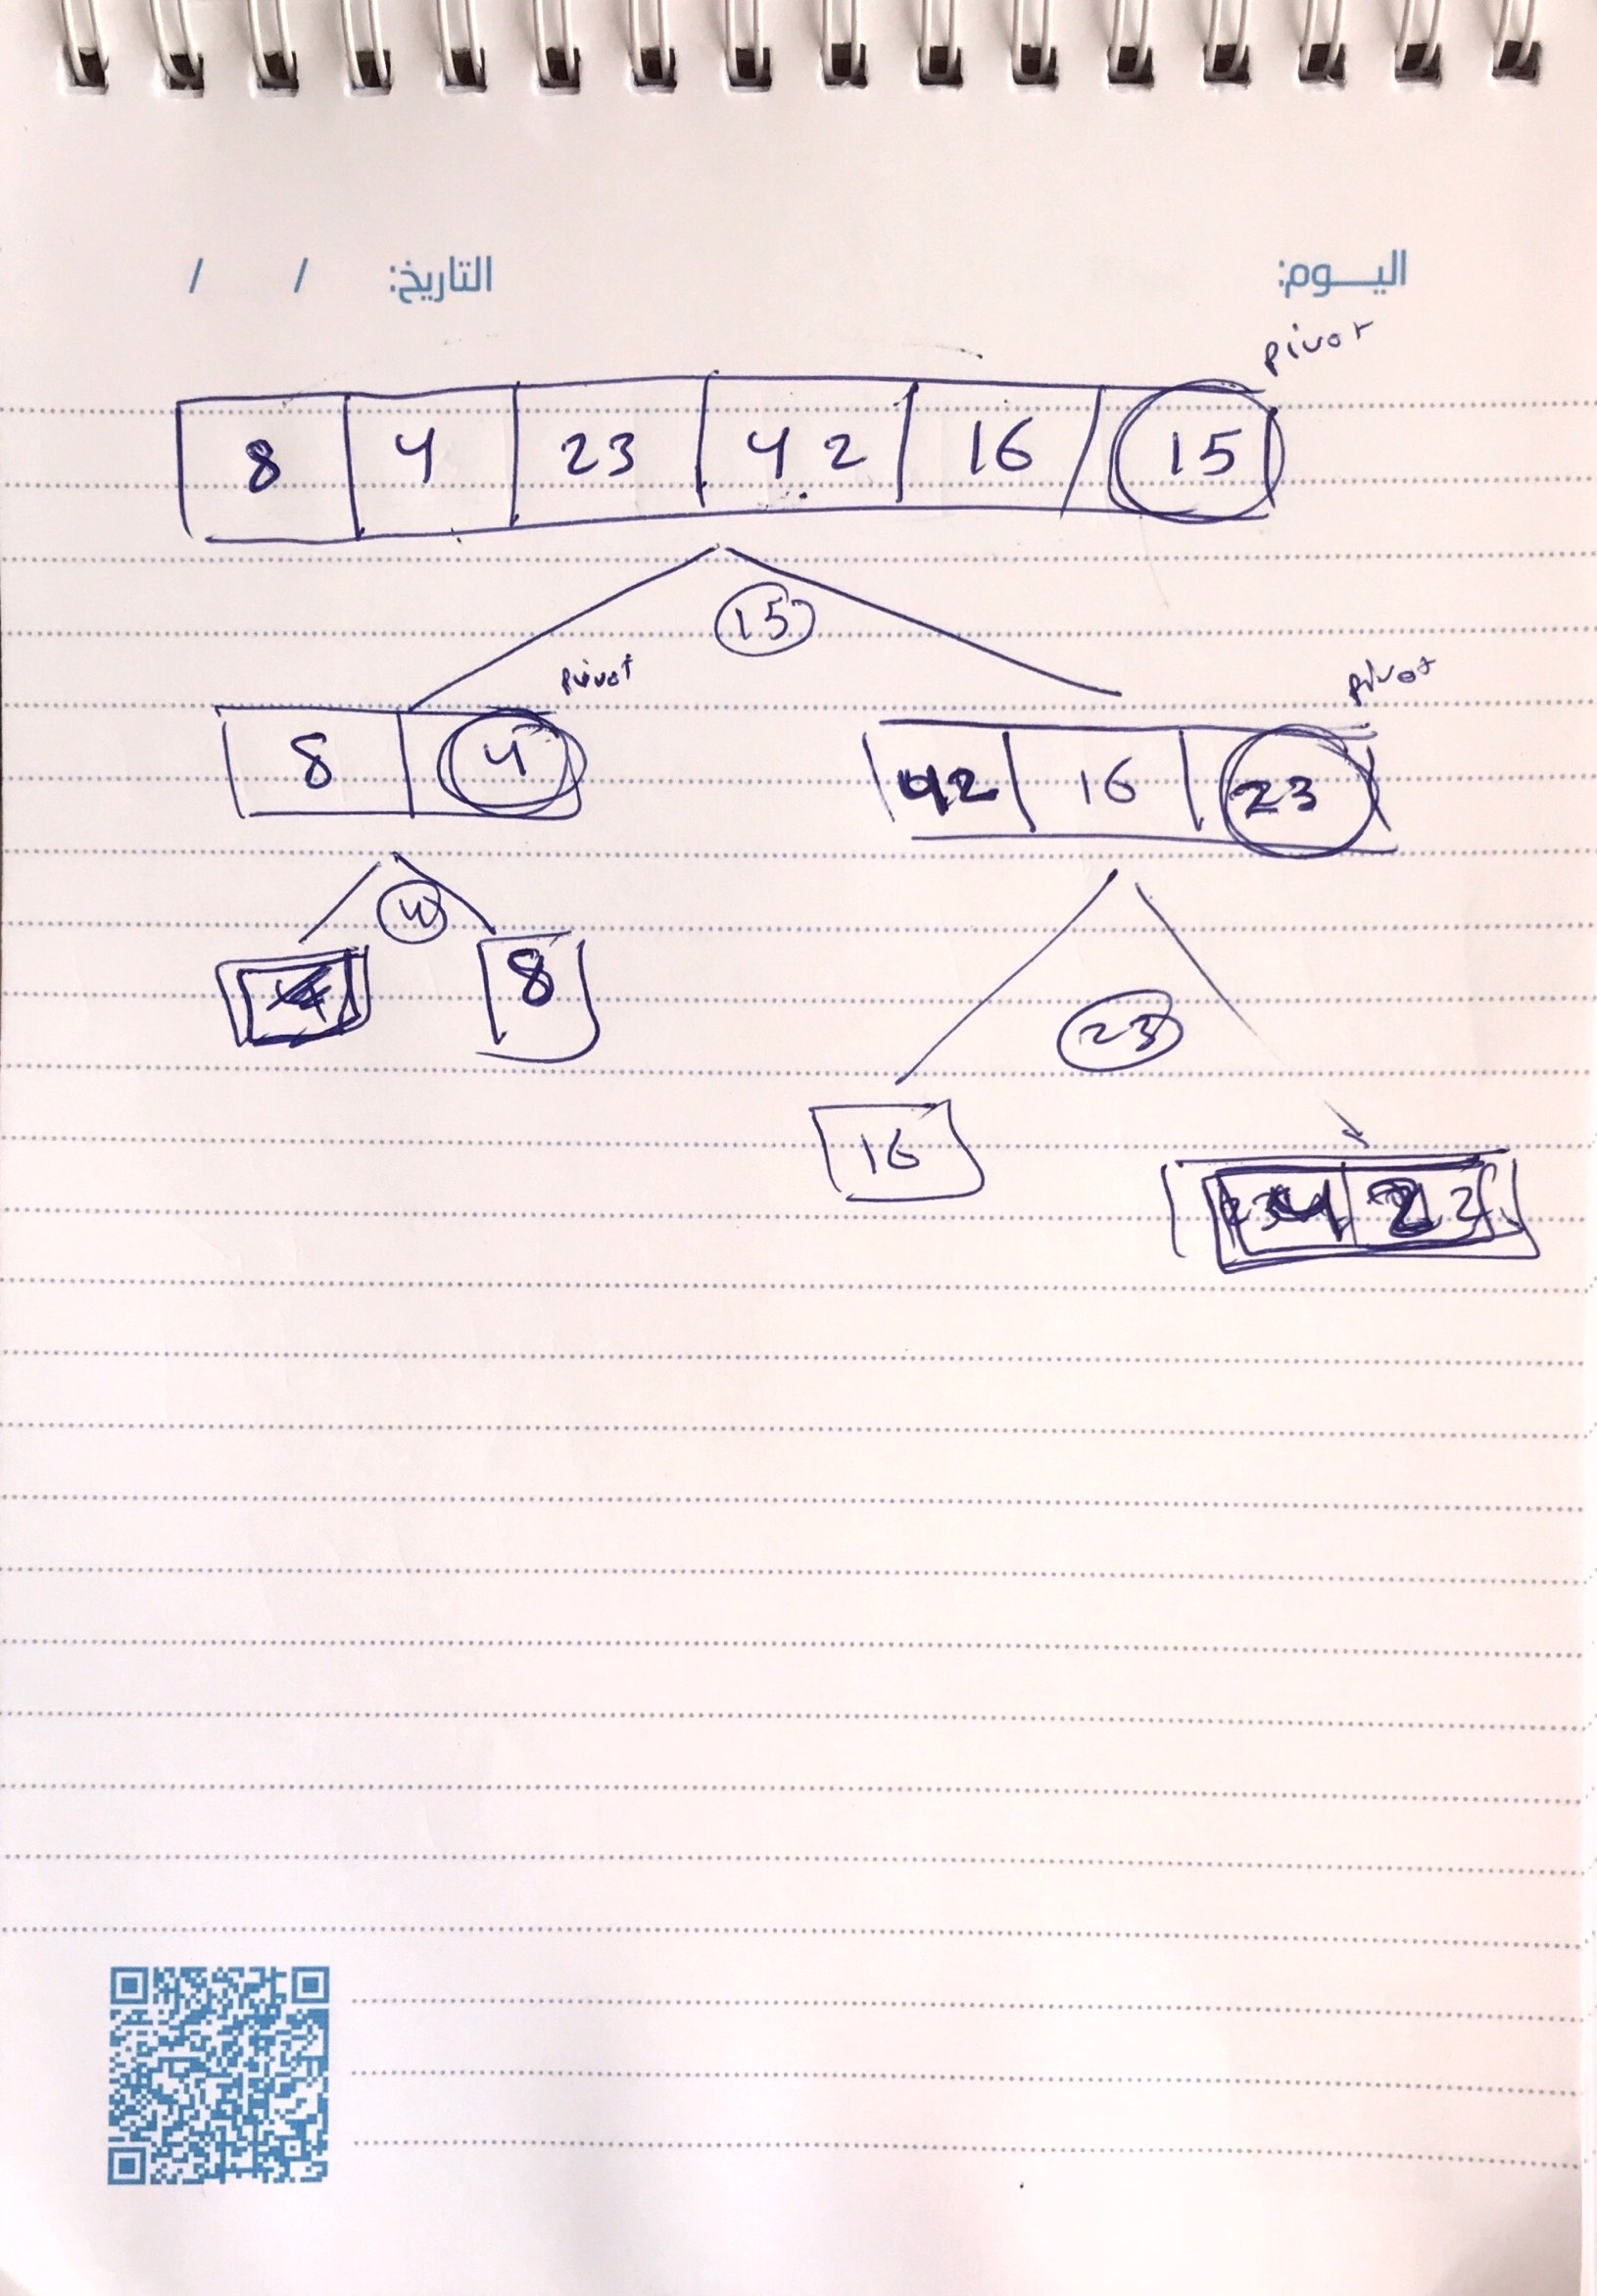 اليـــوم: التاريخ: / /
pivot
8 4 23 42 16 15
15
pivot pivot
8 4 42 16 23
4
8
23
16